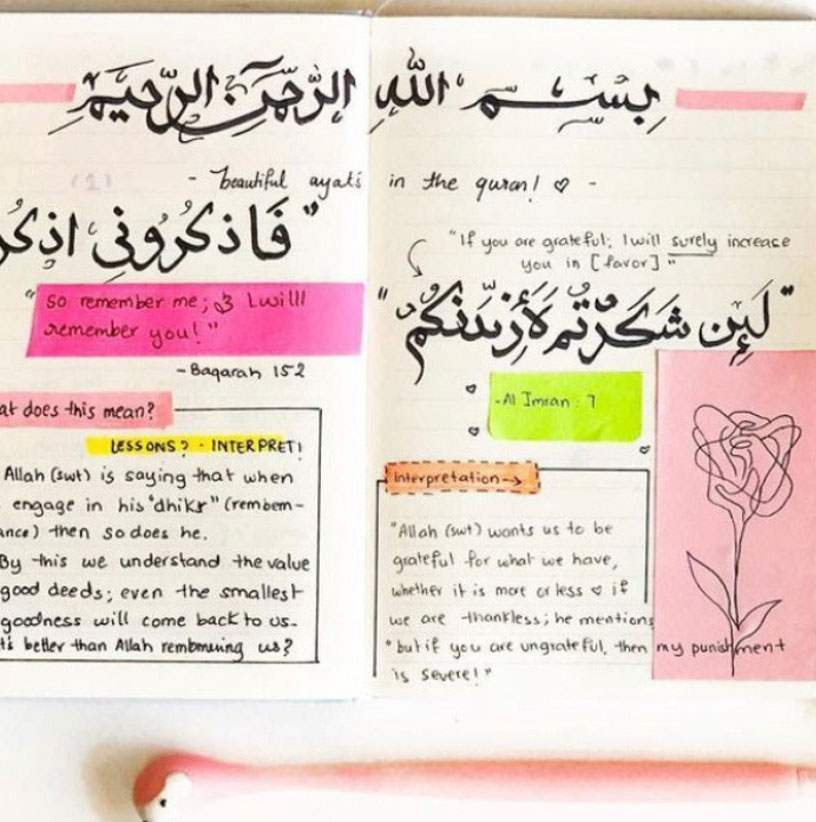 بِسْمِ اللهِ الرَّحْمَنِ الرَّحِيْمِ
- beautiful ayats in the quran! ♡ -
"فَاذْكُرُونِي اذْكُر
"So remember me; I willll
remember you!"
- Baqarah 152
at does this mean?
LESSONS? - INTERPRET!
Allah (swt) is saying that when
engage in his "dhikr" (rembem-
ance) then so does he.
By this we understand the value
good deeds; even the smallest
goodness will come back to us.
t's better than Allah rembmering us?
"If you are grateful; I will surely increase
you in [favor]"
"لَئِن شَكَرْتُم لَأَزِيدَنَّكُمْ"
- Al Imran : 7
interpretation →
"Allah (swt) wants us to be
grateful for what we have,
whether it is more or less ♡ if
we are thankless; he mentions
"but if you are ungrateful, then my punishment
is severe!"